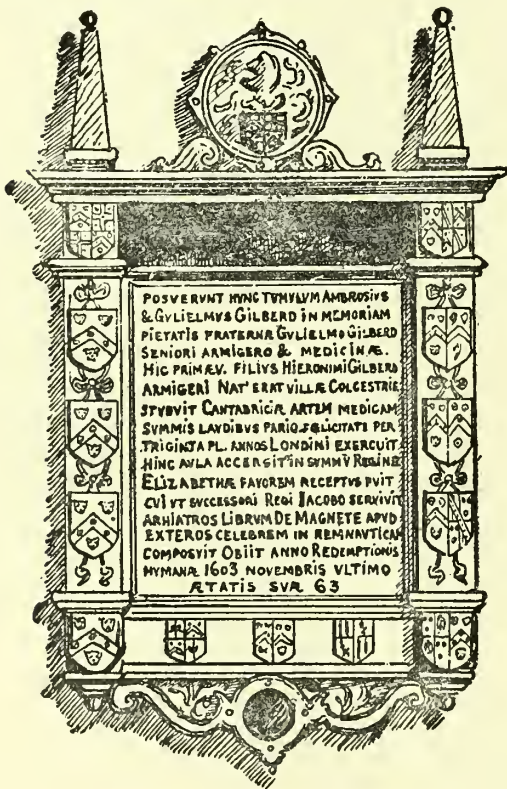 POSVERVNT HVNC TVMVLVM AMBROSIVS
& GVLIELMVS GILBERD IN MEMORIAM
PIETATIS FRATERNÆ GVLIELMO GILBERD
SENIORI ARMIGERO & MEDICINÆ.
HIC PRIMÆV. FILIVS HIERONIMI GILBERD
ARMIGERI NAT' ERAT VILLÆ COLCESTRIE
STVDVIT CANTABRICIÆ ARTEM MEDICAM
SVMMIS LAVDIBVS PARIQ. FŒLICITATE PER
TRIGINTA PL. ANNOS LONDINI EXERCUIT
HINC AVLA ACCERSIT' IN SVMMV̄ REGINÆ
ELIZABETHÆ FAVOREM RECEPTVS FVIT
CVI VT SVCCESSORI REGI IACOBO SERVIVIT
ARHIATROS LIBRVM DE MAGNETE APVD
EXTEROS CELEBREM IN REMNAVTICAM
COMPOSVIT OBIIT ANNO REDEMPTIONIS
HVMANÆ 1603 NOVEMBRIS VLTIMO
ÆTATIS SVÆ 63